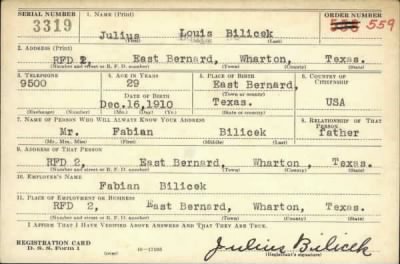 SERIAL NUMBER 1. NAME (Print) ORDER NUMBER
3319 Julius Louis Bilicek 556 559
(First) (Middle) (Last)
2. ADDRESS (Print)
RFD 2, East Bernard, Wharton, Texas.
(Number and street or R. F. D. number) (Town) (County) (State)
3. TELEPHONE 4. AGE IN YEARS 5. PLACE OF BIRTH 6. COUNTRY OF CITIZENSHIP
9500 29 East Bernard,
(Town or county)
DATE OF BIRTH
Dec.16,1910 Texas. USA
(Exchange) (Number) (Mo.) (Day) (Yr.) (State or country)
7. NAME OF PERSON WHO WILL ALWAYS KNOW YOUR ADDRESS 8. RELATIONSHIP OF THAT PERSON
Mr. Fabian Bilicek father
(Mr., Mrs., Miss) (First) (Middle) (Last)
9. ADDRESS OF THAT PERSON
RFD 2, East Bernard, Wharton , Texas.
(Number and street or R. F. D. number) (Town) (County) (State)
10. EMPLOYER'S NAME
Fabian Bilicek
11. PLACE OF EMPLOYMENT OR BUSINESS
RFD 2, East Bernard, Wharton, Texas.
(Number and street or R. F. D. number) (Town) (County) (State)
I AFFIRM THAT I HAVE VERIFIED ABOVE ANSWERS AND THAT THEY ARE TRUE.
REGISTRATION CARD
D. S. S. FORM 1 (over) Julius Bilicek
(Registrant's signature)